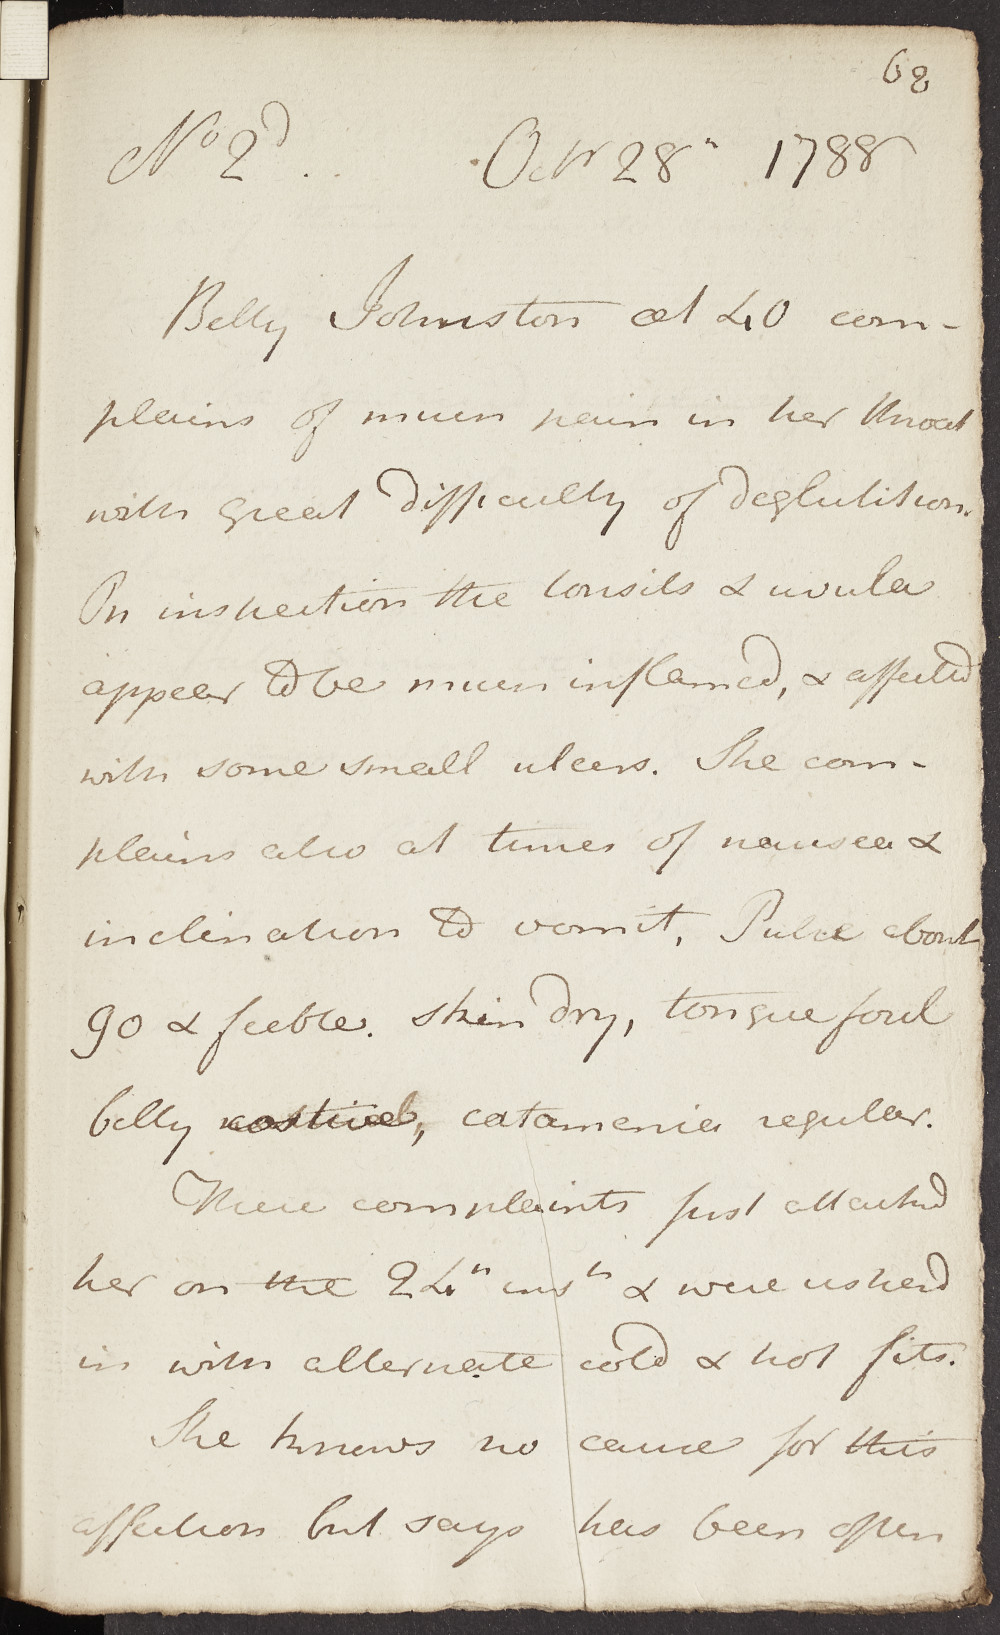 68
No 2d Octr 28th 1788
Betty Johnston æt 40 com-
plains of much pain in her throat
with great difficulty of deglutition.
On inspection the tonsils & uvula
appear to be much inflamed, & affected
with some small ulcers. She com-
plains also at times of nausea &
inclination to vomit, Pulse about
90 & feeble. skin dry, tongue foul
belly costive, catamenia regular.
These complaints first attacked
her on the 24th inst & were usherd
in with alternate cold & hot fits.
She knows no cause for this
affection but says has been often